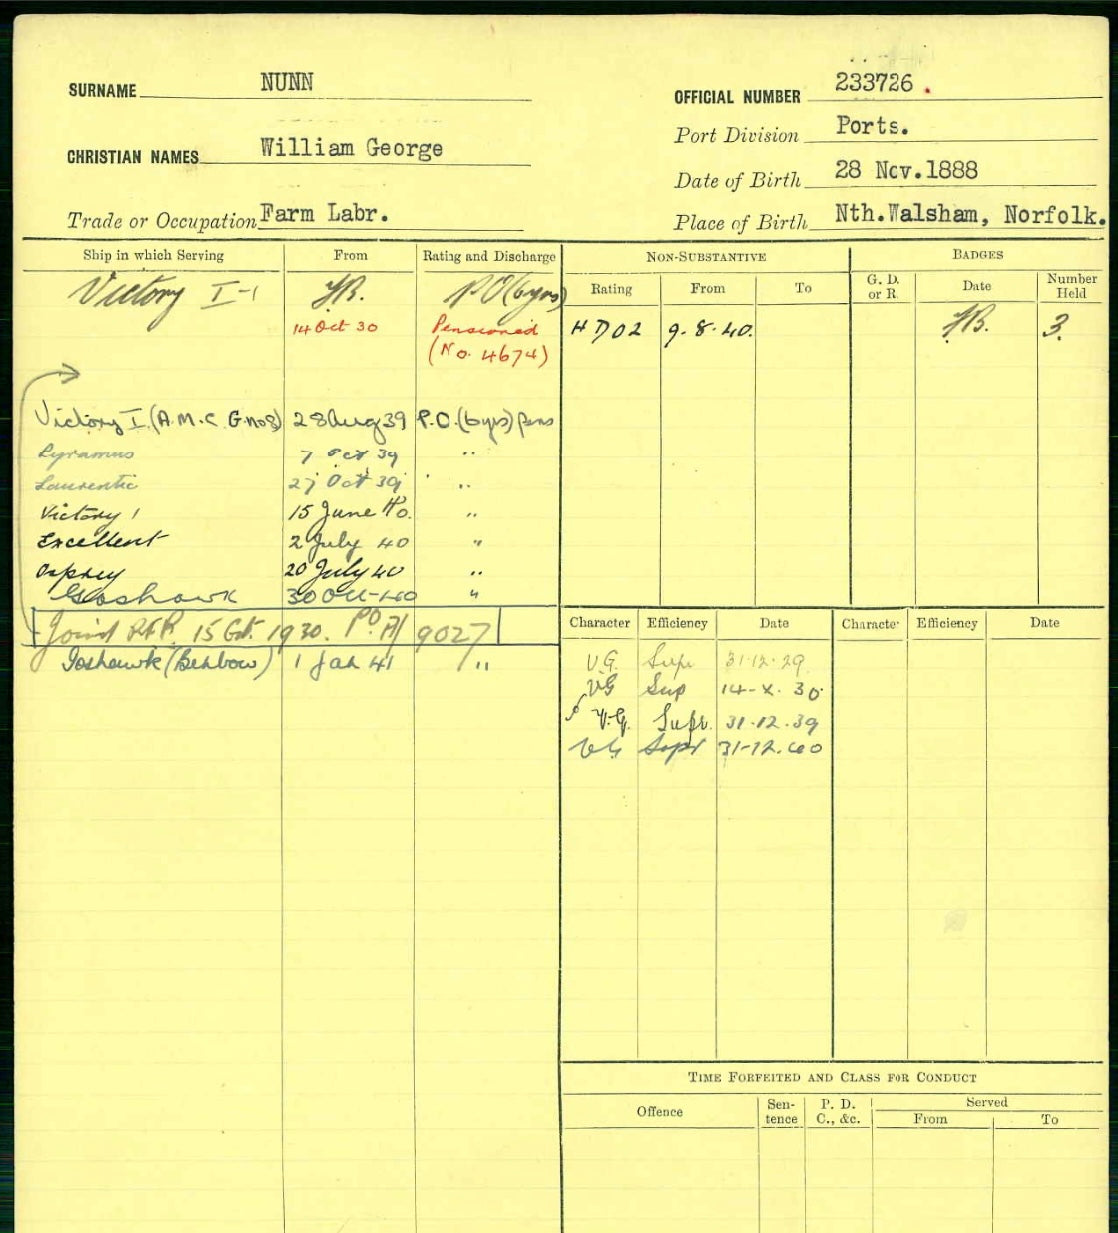 SURNAME NUNN
OFFICIAL NUMBER 233726.
Port Division Ports.
CHRISTIAN NAMES William George
Date of Birth 28 Nov.1888
Trade or Occupation Farm Labr.
Place of Birth Nth.Walsham, Norfolk.
Ship in which Serving From Rating and Discharge
Victory I PO (6yrs)
14 Oct 30 Pensioned
(No. 4674)
Victory I (A.M.C. G.nos) 28 Aug 39 P.O. (6yrs) pens
Pyramus 7 Oct 39 "
Laurentic 27 Oct 39 "
Victory 1 15 June 40. "
Excellent 2 July 40 "
Osprey 20 July 40 "
Goshawk 30 Oct 40 "
Joined RFR. 15 Oct. 1930. PO. 9027
Goshawk (Benbow) 1 Jan 41 "
NON-SUBSTANTIVE
Rating From To
HD02 9.8.40.
BADGES
G. D. or R. Date Number Held
3.
Character Efficiency Date Character Efficiency Date
V.G. Supr 31.12.29
VG Sup 14-X-30
V.G. Supr. 31.12.39
VG Supr 31-12.40
TIME FORFEITED AND CLASS FOR CONDUCT
Offence Sentence P. D. C., &c. Served
From To